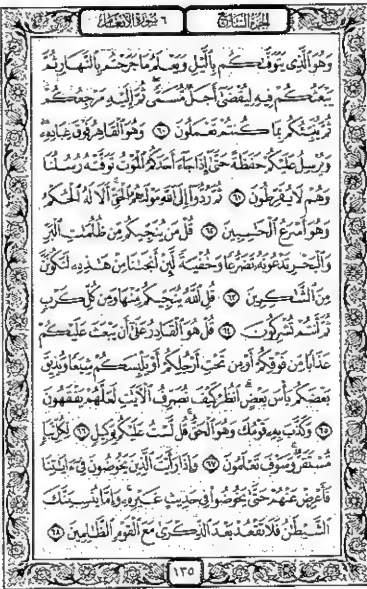 الجزء السابع
٦ سورة الأنعام
وَهُوَ ٱلَّذِى يَتَوَفَّىٰكُم بِٱلَّيْلِ وَيَعْلَمُ مَا جَرَحْتُم بِٱلنَّهَارِ ثُمَّ
يَبْعَثُكُمْ فِيهِ لِيُقْضَىٰٓ أَجَلٌ مُّسَمًّى ثُمَّ إِلَيْهِ مَرْجِعُكُمْ
ثُمَّ يُنَبِّئُكُم بِمَا كُنتُمْ تَعْمَلُونَ ٦٠ وَهُوَ ٱلْقَاهِرُ فَوْقَ عِبَادِهِۦ
وَيُرْسِلُ عَلَيْكُمْ حَفَظَةً حَتَّىٰٓ إِذَا جَآءَ أَحَدَكُمُ ٱلْمَوْتُ تَوَفَّتْهُ رُسُلُنَا
وَهُمْ لَا يُفَرِّطُونَ ٦١ ثُمَّ رُدُّوٓا۟ إِلَى ٱللَّهِ مَوْلَىٰهُمُ ٱلْحَقِّ أَلَا لَهُ ٱلْحُكْمُ
وَهُوَ أَسْرَعُ ٱلْحَـٰسِبِينَ ٦٢ قُلْ مَن يُنَجِّيكُم مِّن ظُلُمَـٰتِ ٱلْبَرِّ
وَٱلْبَحْرِ تَدْعُونَهُۥ تَضَرُّعًا وَخُفْيَةً لَّئِنْ أَنجَىٰنَا مِنْ هَـٰذِهِۦ لَنَكُونَنَّ
مِنَ ٱلشَّـٰكِرِينَ ٦٣ قُلِ ٱللَّهُ يُنَجِّيكُم مِّنْهَا وَمِن كُلِّ كَرْبٍ
ثُمَّ أَنتُمْ تُشْرِكُونَ ٦٤ قُلْ هُوَ ٱلْقَادِرُ عَلَىٰٓ أَن يَبْعَثَ عَلَيْكُمْ
عَذَابًا مِّن فَوْقِكُمْ أَوْ مِن تَحْتِ أَرْجُلِكُمْ أَوْ يَلْبِسَكُمْ شِيَعًا وَيُذِيقَ
بَعْضَكُم بَأْسَ بَعْضٍ ٱنظُرْ كَيْفَ نُصَرِّفُ ٱلْـَٔايَـٰتِ لَعَلَّهُمْ يَفْقَهُونَ
٦٥ وَكَذَّبَ بِهِۦ قَوْمُكَ وَهُوَ ٱلْحَقُّ قُل لَّسْتُ عَلَيْكُم بِوَكِيلٍ ٦٦ لِّكُلِّ نَبَإٍ
مُّسْتَقَرٌّ وَسَوْفَ تَعْلَمُونَ ٦٧ وَإِذَا رَأَيْتَ ٱلَّذِينَ يَخُوضُونَ فِىٓ ءَايَـٰتِنَا
فَأَعْرِضْ عَنْهُمْ حَتَّىٰ يَخُوضُوا۟ فِى حَدِيثٍ غَيْرِهِۦ وَإِمَّا يُنسِيَنَّكَ
ٱلشَّيْطَـٰنُ فَلَا تَقْعُدْ بَعْدَ ٱلذِّكْرَىٰ مَعَ ٱلْقَوْمِ ٱلظَّـٰلِمِينَ ٦٨
١٣٥